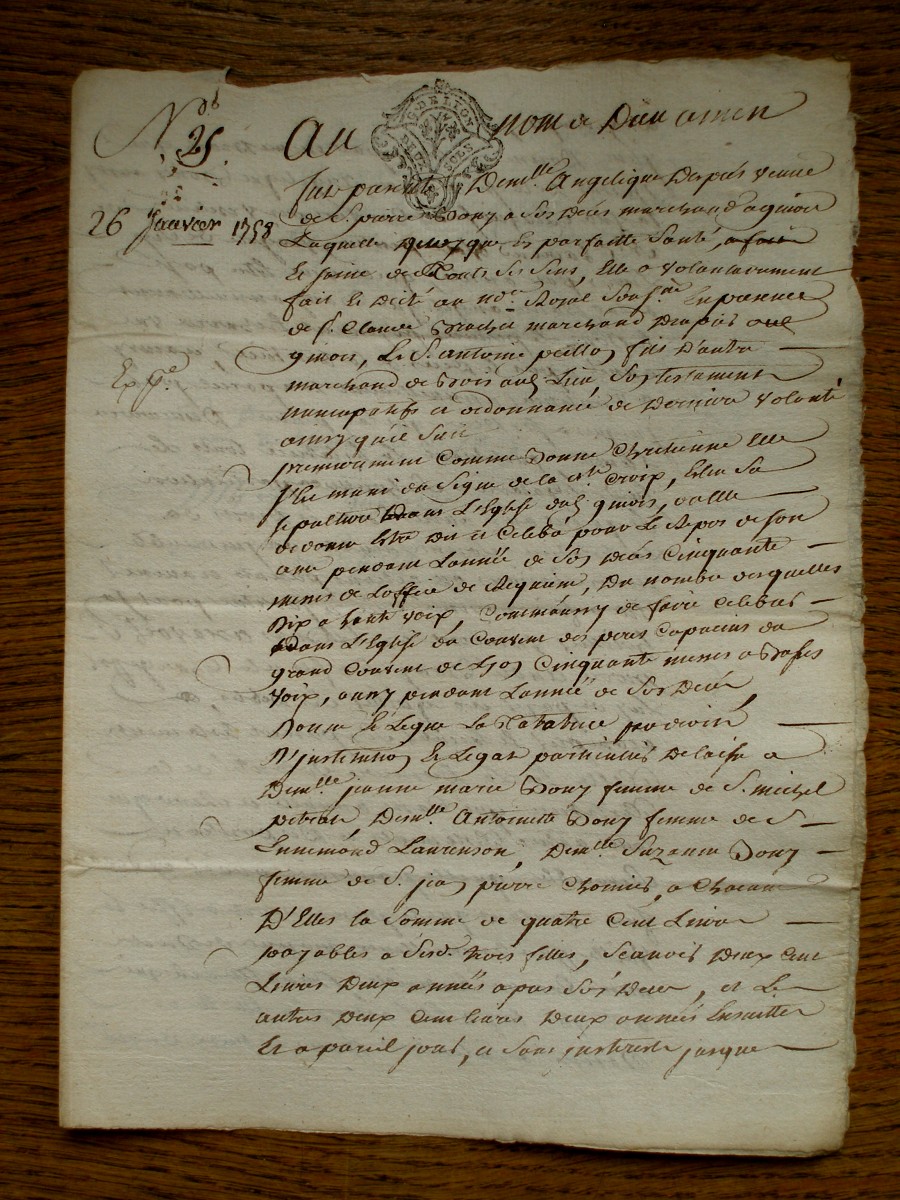 N.
25.
26 Janvier 1758
Exp.e
Au nom de Dieu amen
G. DE LYON
DEUX SOLS
fut presente Demlle. Angelique Despres veuve
de S. pierre Dony a Son Deces marchand a
Laquelle que en parfaitte Santé,
Et saine de Touts Ses Sens, Elle a volontairement
fait Et Dicté au nore. Royal Sousne. En presence
de S. Claude marchand Drapier aud.
Le S. antoine peillon fils D'autre
marchand de Bois aud. Lieu Son testament
nuncupatif et ordonnance de Derniere volonté
ainsy qu'il Suit
premierement comme Bonne Chretienne Elle
s'Est muni du Signe de la ste. Croix, Elu Sa
Sepulture Dans L'Eglise dud. veille
Estre Dit et Celebré pour Le Repos de Son
ame pendant L'année de Son Deces Cinquante
messes de L'office de Requiem, Du nombre desquelles
Dix a haute voix, Comm'aussy de faire Celebrer
Dans L'Eglise du Couvent des peres Capucins du
grand Couvent de Lyon Cinquante messes a Basses
voix, aussy pendant L'année de Son Deces,
Donne Et Legue La Testatrice par droit
D'institution Et Legat particuliers Delaisse a
Demlle. jeanne marie Dony femme de S. michel
Demlle. Antoinette Dony femme de S.
Ennemond Laurenson, Demlle. Suzanne Dony
femme de S. jean pierre a Chacune
D'Elles La Somme de quatre Cent Livres
payables a Sesd. trois filles, Scavoir Deux Cent
Livres Deux années apres Son Deces, et Les
autres Deux Cent livres Deux années Ensuitte
Et a pareil jour, et Sans interests jusque